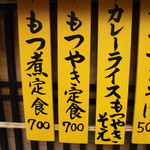 カレーライスもつやき
そえ
もつやき定食
700
もつ煮定食
700